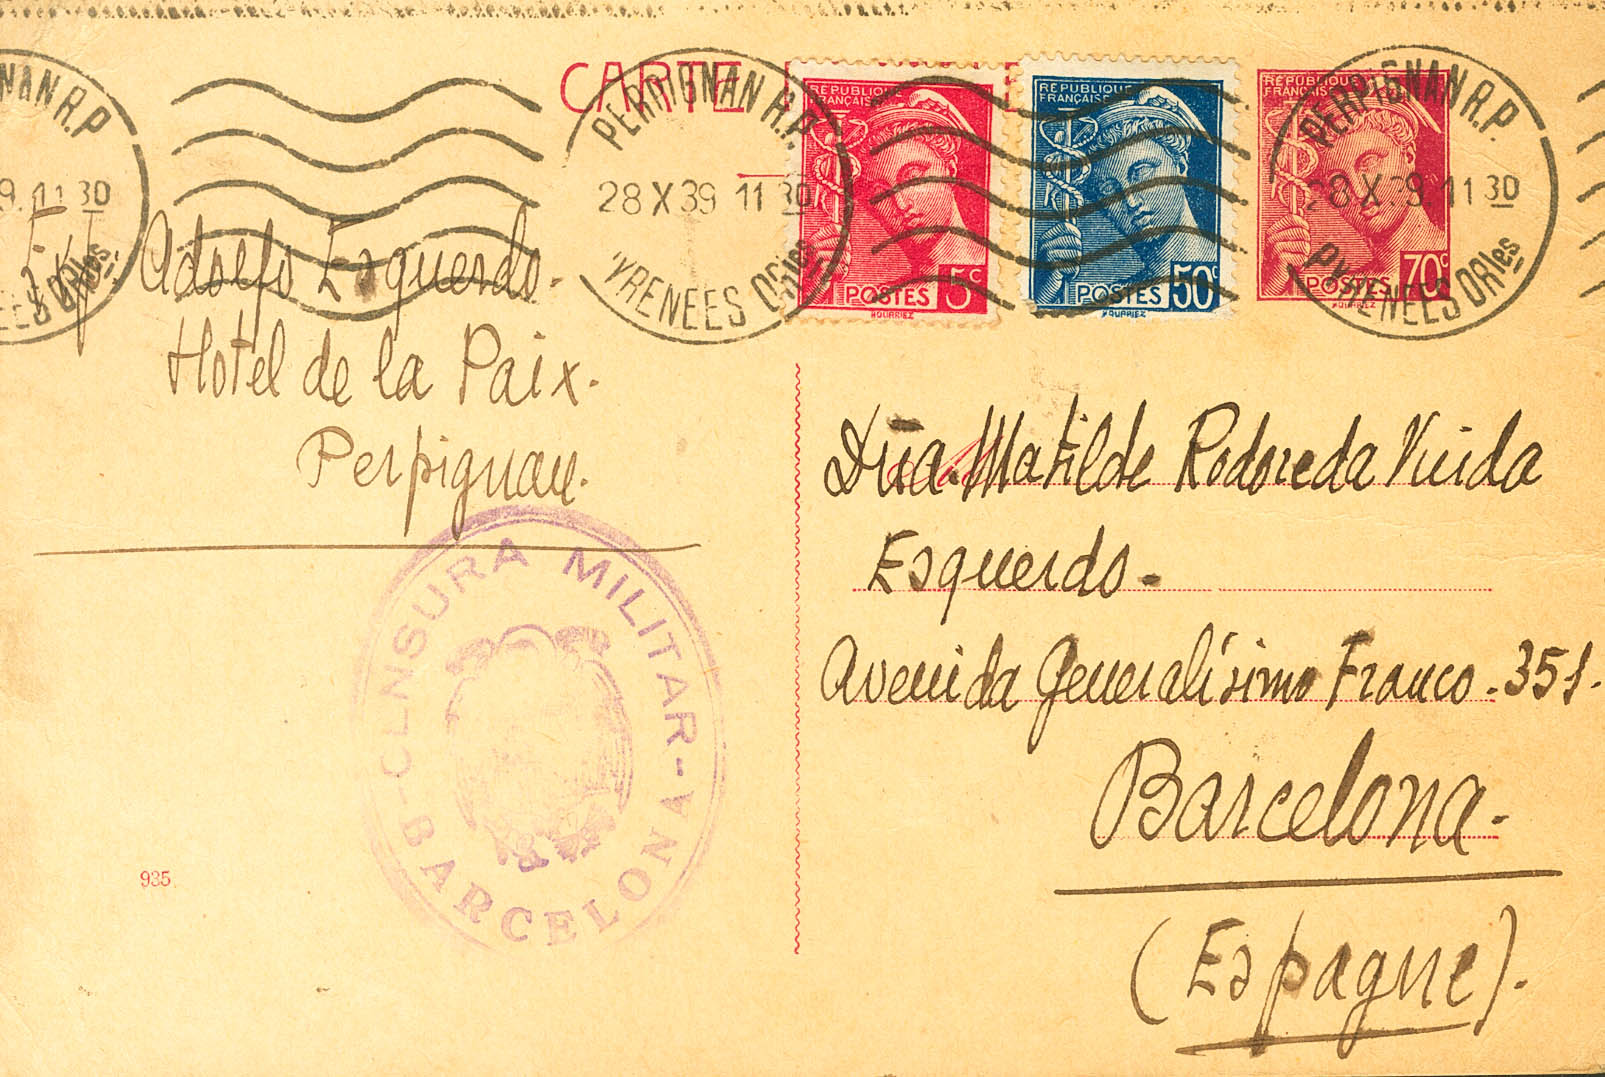 CARTE
PERPIGNAN R.P.
28 X 39 11 30
PYRENEES ORles
RÉPUBLIQUE
FRANÇAISE
POSTES 5c
HOURRIEZ
RÉPUBLIQUE
FRANÇAISE
POSTES 50c
HOURRIEZ
RÉPUBLIQUE
FRANÇAISE
POSTES 70c
HOURRIEZ
PERPIGNAN R.P.
28 X 39 11 30
PYRENEES ORles
NAN R.P
9. 11 30
EES ORles
Adolfo Esquerdo.
Hotel de la Paix.
Perpignan.
CENSURA MILITAR - BARCELONA -
935
Dña. Matilde Rodoreda Viuda
Esquerdo -
Avenida Generalísimo Franco - 351.
Barcelona.
(Espagne).